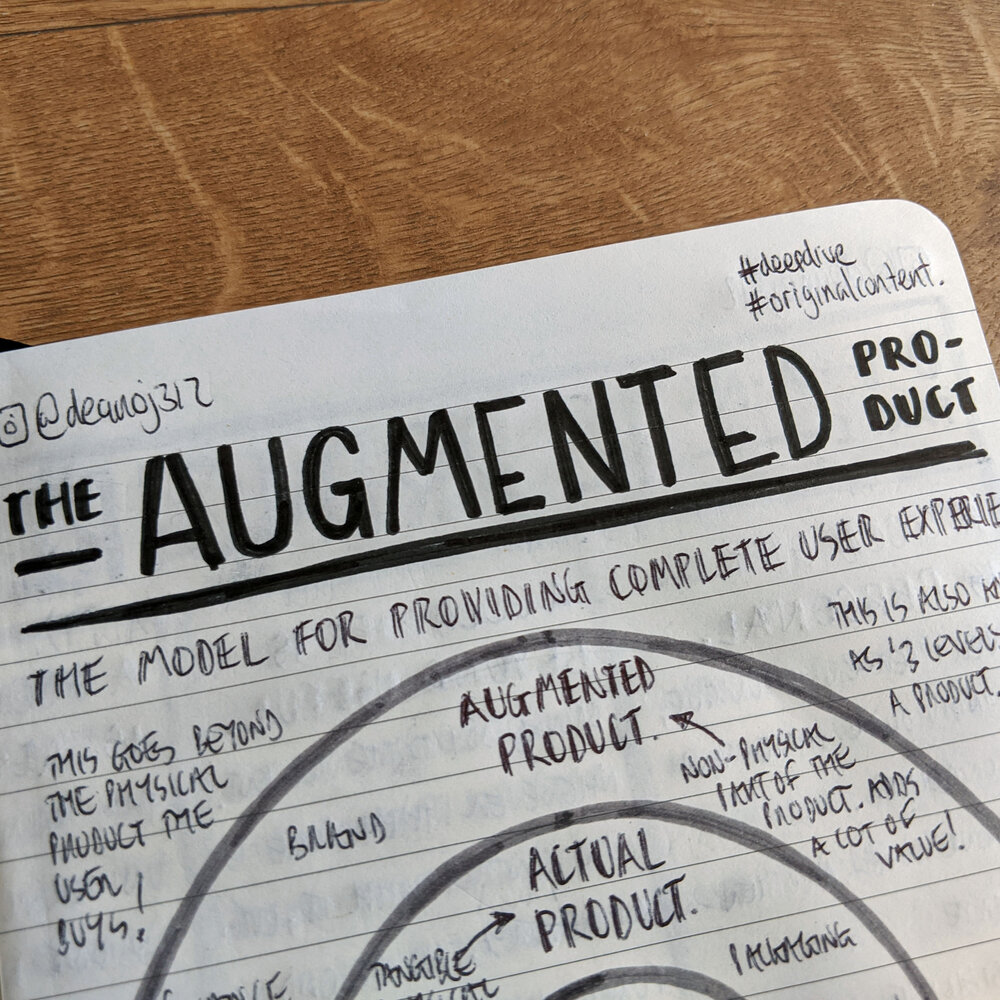 #deepdive
#originalcontent.
@deanoj312
THE AUGMENTED PRO-
DUCT
THE MODEL FOR PROVIDING COMPLETE USER EXPERIE
THIS IS ALSO
AS '3 LEVELS
A PRODUCT.
THIS GOES BEYOND
THE PHYSICAL
PRODUCT THE
USER
BUYS!
AUGMENTED
PRODUCT.
NON-PHYSICAL
PART OF THE
PRODUCT. ADDS
A LOT OF
VALUE!
BRAND
ACTUAL
PRODUCT.
TANGIBLE
PACKAGING